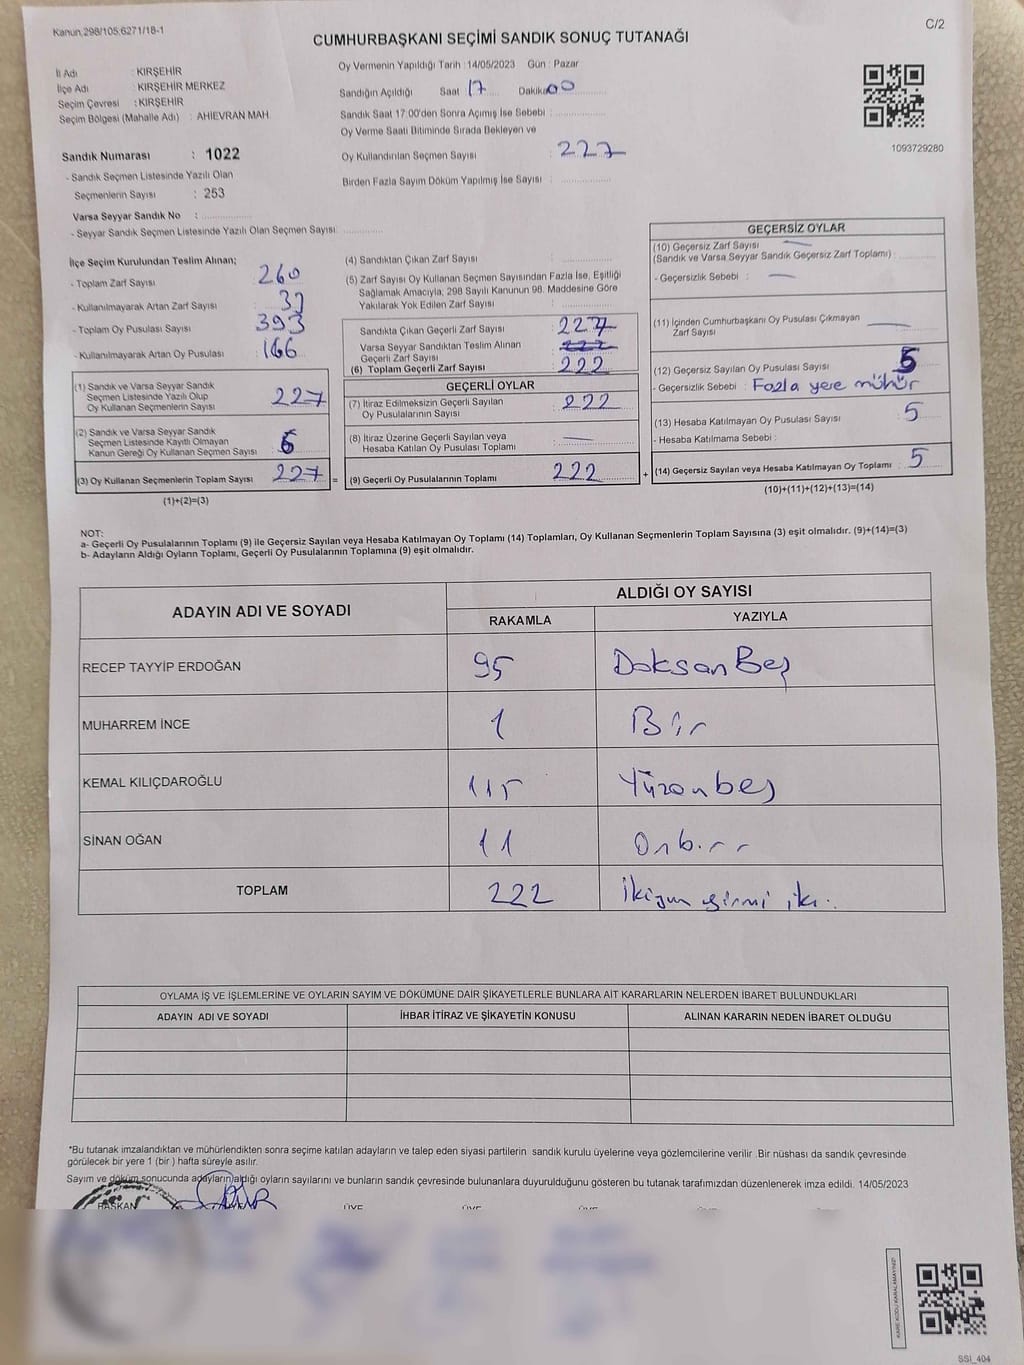 Kanun,298/105;6271/18-1
C/2
CUMHURBAŞKANI SEÇİMİ SANDIK SONUÇ TUTANAĞI
İl Adı : KIRŞEHİR
İlçe Adı : KIRŞEHİR MERKEZ
Seçim Çevresi : KIRŞEHİR
Seçim Bölgesi (Mahalle Adı) : AHIEVRAN MAH.
Sandık Numarası : 1022
- Sandık Seçmen Listesinde Yazılı Olan
Seçmenlerin Sayısı : 253
Varsa Seyyar Sandık No :
- Seyyar Sandık Seçmen Listesinde Yazılı Olan Seçmen Sayısı:
Oy Vermenin Yapıldığı Tarih : 14/05/2023 Gün : Pazar
Sandığın Açıldığı Saat 17 Dakika 00
Sandık Saat 17:00'den Sonra Açımış İse Sebebi :
Oy Verme Saati Bitiminde Sırada Bekleyen ve
Oy Kullandırılan Seçmen Sayısı : 227
Birden Fazla Sayım Döküm Yapılmış İse Sayısı :
1093729280
İlçe Seçim Kurulundan Teslim Alınan;
- Toplam Zarf Sayısı : 260
- Kullanılmayarak Artan Zarf Sayısı : 33
- Toplam Oy Pusulası Sayısı : 393
- Kullanılmayarak Artan Oy Pusulası : 166
(1) Sandık ve Varsa Seyyar Sandık
Seçmen Listesinde Yazılı Olup
Oy Kullanan Seçmenlerin Sayısı : 227
(2) Sandık ve Varsa Seyyar Sandık
Seçmen Listesinde Kayıtlı Olmayan
Kanun Gereği Oy Kullanan Seçmen Sayısı :
(3) Oy Kullanan Seçmenlerin Toplam Sayısı : 227
(1)+(2)=(3)
(4) Sandıktan Çıkan Zarf Sayısı :
(5) Zarf Sayısı Oy Kullanan Seçmen Sayısından Fazla İse, Eşitliği
Sağlamak Amacıyla, 298 Sayılı Kanunun 98. Maddesine Göre
Yakılarak Yok Edilen Zarf Sayısı :
Sandıkta Çıkan Geçerli Zarf Sayısı : 227
Varsa Seyyar Sandıktan Teslim Alınan
Geçerli Zarf Sayısı : 222
(6) Toplam Geçerli Zarf Sayısı : 222
GEÇERLİ OYLAR
(7) İtiraz Edilmeksizin Geçerli Sayılan
Oy Pusulalarının Sayısı : 222
(8) İtiraz Üzerine Geçerli Sayılan veya
Hesaba Katılan Oy Pusulası Toplamı : —
= (9) Geçerli Oy Pusulalarının Toplamı : 222
GEÇERSİZ OYLAR
(10) Geçersiz Zarf Sayısı —
(Sandık ve Varsa Seyyar Sandık Geçersiz Zarf Toplamı) :
- Geçersizlik Sebebi : —
(11) İçinden Cumhurbaşkanı Oy Pusulası Çıkmayan
Zarf Sayısı : —
(12) Geçersiz Sayılan Oy Pusulası Sayısı : 5
- Geçersizlik Sebebi : Fazla yere mühür
(13) Hesaba Katılmayan Oy Pusulası Sayısı : 5
- Hesaba Katılmama Sebebi :
+ (14) Geçersiz Sayılan veya Hesaba Katılmayan Oy Toplamı : 5
(10)+(11)+(12)+(13)=(14)
NOT:
a- Geçerli Oy Pusulalarının Toplamı (9) ile Geçersiz Sayılan veya Hesaba Katılmayan Oy Toplamı (14) Toplamları, Oy Kullanan Seçmenlerin Toplam Sayısına (3) eşit olmalıdır. (9)+(14)=(3)
b- Adayların Aldığı Oyların Toplamı, Geçerli Oy Pusulalarının Toplamına (9) eşit olmalıdır.
ADAYIN ADI VE SOYADI
ALDIĞI OY SAYISI
RAKAMLA YAZIYLA
RECEP TAYYİP ERDOĞAN 95 Doksan Beş
MUHARREM İNCE 1 Bir
KEMAL KILIÇDAROĞLU 115 Yüzonbeş
SİNAN OĞAN 11 Onbir
TOPLAM 222 İkiyüz yirmi iki.
OYLAMA İŞ VE İŞLEMLERİNE VE OYLARIN SAYIM VE DÖKÜMÜNE DAİR ŞİKAYETLERLE BUNLARA AİT KARARLARIN NELERDEN İBARET BULUNDUKLARI
ADAYIN ADI VE SOYADI İHBAR İTİRAZ VE ŞİKAYETİN KONUSU ALINAN KARARIN NEDEN İBARET OLDUĞU
*Bu tutanak imzalandıktan ve mühürlendikten sonra seçime katılan adayların ve talep eden siyasi partilerin sandık kurulu üyelerine veya gözlemcilerine verilir .Bir nüshası da sandık çevresinde
görülecek bir yere 1 (bir ) hafta süreyle asılır.
Sayım ve döküm sonucunda adayların aldığı oyların sayılarını ve bunların sandık çevresinde bulunanlara duyurulduğunu gösteren bu tutanak tarafımızdan düzenlenerek imza edildi. 14/05/2023
BAŞKAN ÜYE ÜYE ÜYE
KARE KODU KARALAMAYINIZ!
SSI_404